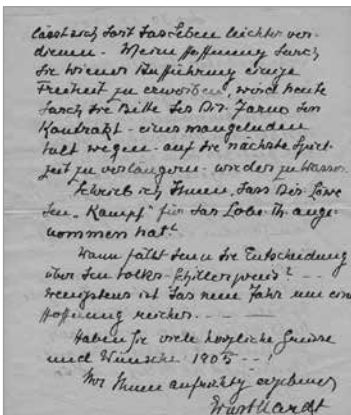 lässt sich dort das Leben leichter ver-
dienen. Meine Hoffnung durch
die Wiener Aufführung einige
Freiheit zu erwerben, wird heute
durch die Bitte des Dir. Jarno den
Kontrakt - eines mangelnden
wegen - auf die nächste Spiel-
zeit zu verlängern - wieder zu Wasser.
Schrieb ich Ihnen, dass Dir. Löwe
den „Kampf" für das Lobe-Th. ange-
nommen hat?
Wann fällt denn die Entscheidung
über den Volks-Schillerpreis? - -
Wenigstens ist das neue Jahr um eine
Hoffnung reicher. - - -
Haben Sie viele herzliche Grüsse
und Wünsche 1905 - - !
Ihr Ihnen aufrichtig ergebener
Ernst Hardt